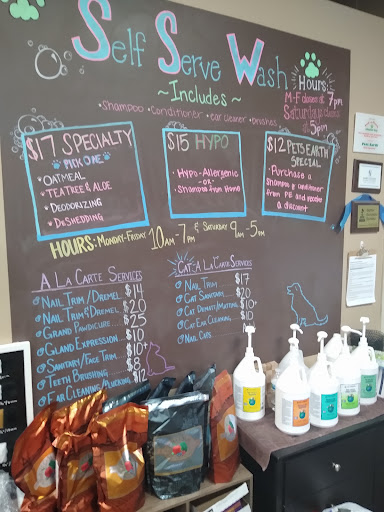 Self Serve Wash
~ Includes ~
• Shampoo • Conditioner • Ear Cleaner • Brushes
Hours:
7pm
5pm
$17 SPECIALTY
PICK ONE
OATMEAL
TEA TREE & ALOE
DEODORIZING
DESHEDDING
$15 HYPO
• Hypo-Allergenic
- or -
• Shampoo from Home
$12 PETS EARTH
SPECIAL
• Purchase a
Shampoo & conditioner
from PE and receive
a discount
HOURS: MONDAY-FRIDAY 10AM-7PM & SATURDAY 9AM-5PM
A LA CARTE SERVICES
NAIL TRIM / DREMEL $14
NAIL TRIM & DREMEL $20
GRAND PAWDICURE $25
GLAND EXPRESSION $10
SANITARY/FACE TRIM $10+
TEETH BRUSHING $8
EAR CLEANING/PLUCKING $12
CAT A LA CARTE SERVICES
NAIL TRIM $17
CAT SANITARY $20
CAT DEMATT/MATTING $10+
CAT EAR CLEANING $10
NAIL CAPS